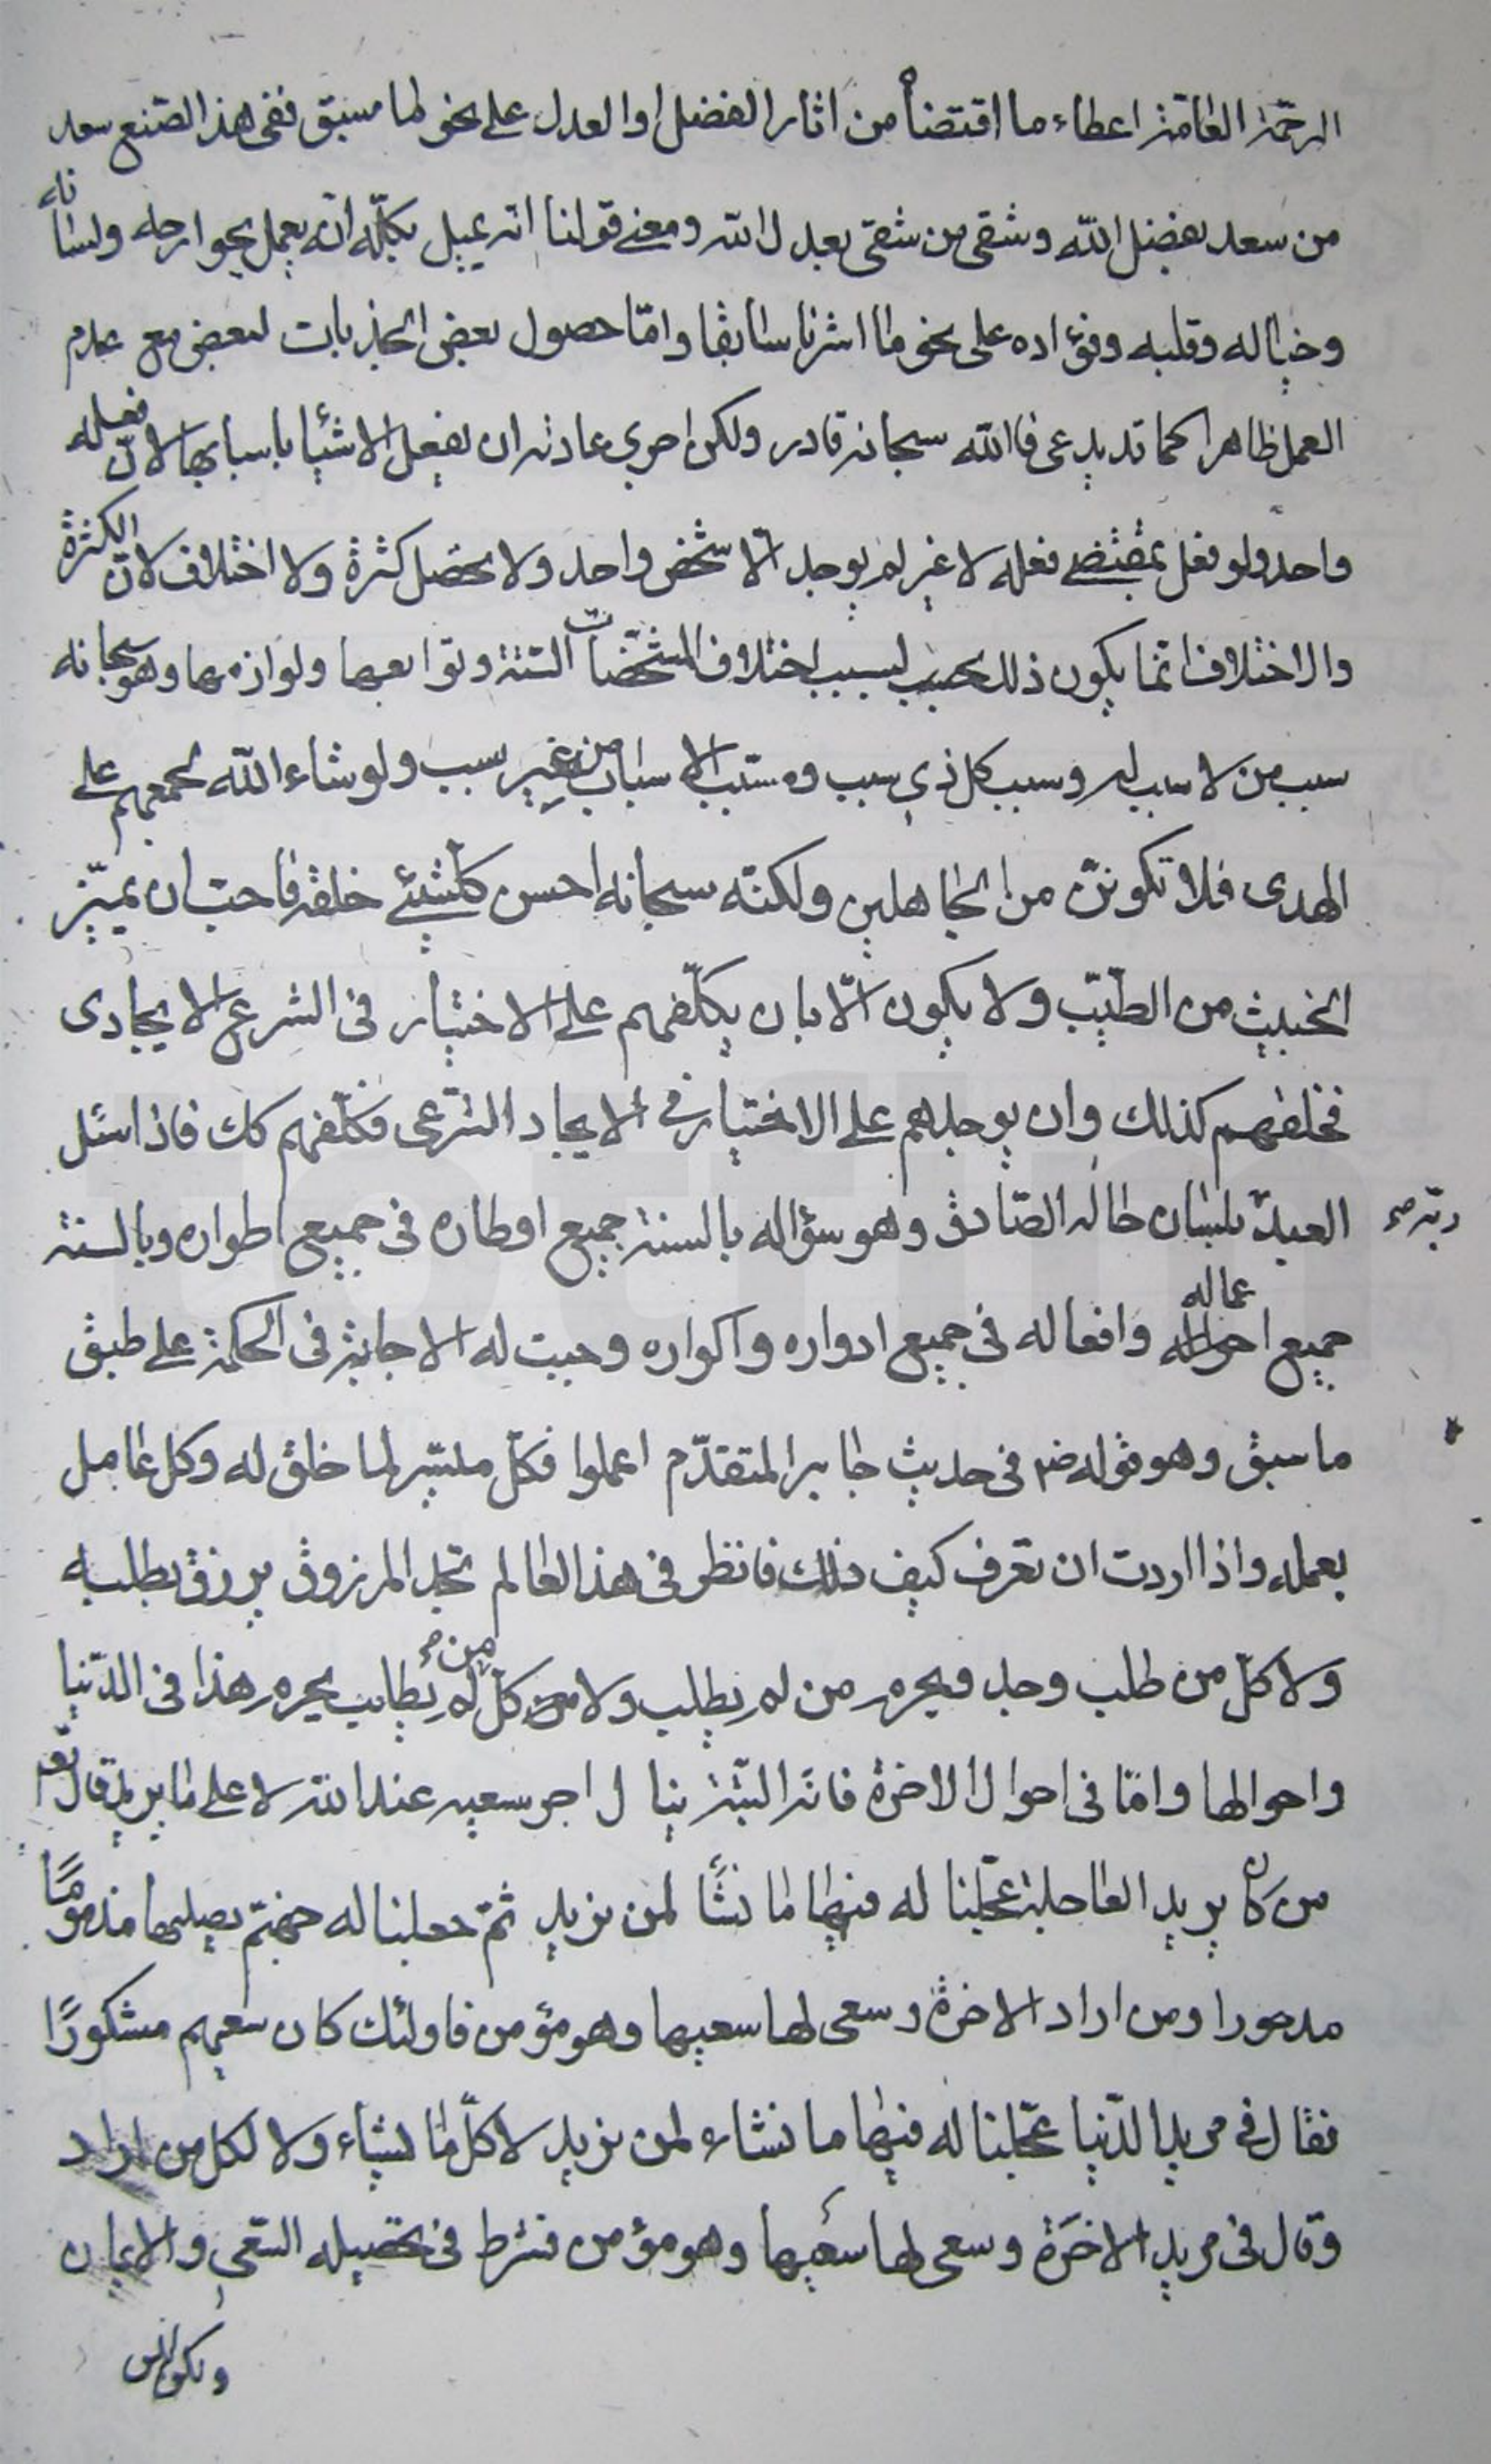 الرحمة العامة اعطاء ما اقتضاه من اثار الفضل او العدل على نحو ما سبق ففى هذا الصنع سعد
من سعد بفضل الله وشقى من شقى بعدل الله ومعنى قولنا انه يميل بكله انه يعمل بجوارحه ولسانه
وخياله وقلبه وفؤاده على نحو ما اشرنا سابقا وامّا حصول بعض الجذبات لبعض مع عدم
العمل ظاهرا كما قد يدعى فالله سبحانه قادر ولكن اجرى عادته ان يفعل الاشيا باسبابها لانّ فعله
واحد ولو فعل بمقتضى فعله لا غير لم يوجد الّا شخص واحد ولا يحصل كثرة ولا اختلاف لانّ الكثرة
والاختلاف انّما يكون ذلك بسبب اختلاف المشخّصات الستة وتوابعها ولوازمها وهو سبحانه
سبب من لا سبب له وسبب كل ذي سبب ومسبّب الاسباب من غير سبب ولو شاء الله لجمعهم على
الهدى فلا تكوننّ من الجاهلين ولكنّه سبحانه احسن كلّشيئ خلقه فاحبّ ان يميّز
الخبيث من الطيّب ولا يكون الّا بان يكلّفهم على الاختيار فى الشرع الايجادى
فخلقهم كذلك وان يوجدهم على الاختيار فى الايجاد الشرعى فكلّفهم كك فاذا سئل
العبد ربّه صح بلسان حاله الصّادق وهو سؤاله بالسنة جميع اوطاره فى جميع اطواره وبالسنة
جميع اعماله وافعاله فى جميع ادواره واكواره وجبت له الاجابة فى الحكمة على طبق
ما سبق وهو قوله ص فى حديث جابر المتقدّم اعملوا فكلّ ميسّر لما خلق له وكل عامل
بعمله واذا اردت ان تعرف كيف ذلك فانظر فى هذا العالم تجد المرزوق يرزق بطلبه
ولا كلّ من طلب وجد ويحرم من لم يطلب ولا كلّ من لم يطلب يحرم هذا فى الدّنيا
واحوالها وامّا فى احوال الاخرة فانه البتّة ينال اجر سعيه عند الله لا على ما يريد قال تع
من كان يريد العاجلة عجّلنا له فيها ما نشاء لمن نريد ثمّ جعلنا له جهنّم يصليها مذمومًا
مدحورا ومن اراد الاخرة وسعى لها سعيها وهو مؤمن فاولئك كان سعيهم مشكورًا
فقال فى مريد الدّنيا عجّلنا له فيها ما نشاء لمن نريد لا كلّ ما يشاء ولا لكل من اراد
وقال فى مريد الاخرة وسعى لها سعيها وهو مؤمن فشرط فى تحصيله السّعى والايمان